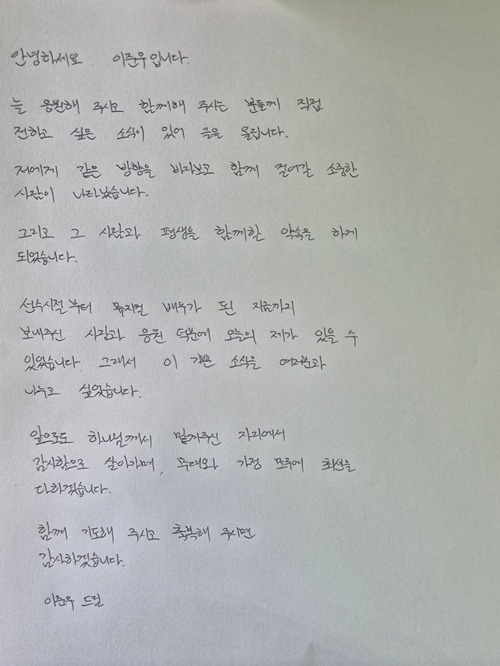 안녕하세요 이준우입니다.
늘 응원해 주시고 함께해 주시는 분들께 직접
전하고 싶은 소식이 있어 글을 올립니다.
저에게 같은 방향을 바라보고 함께 걸어갈 소중한
사람이 나타났습니다.
그리고 그 사람과 평생을 함께할 약속을 하게
되었습니다.
선수시절부터 뮤지컬 배우가 된 지금까지
보내주신 사랑과 응원 덕분에 오늘의 제가 있을 수
있었습니다. 그래서 이 기쁜 소식을 여러분과
나누고 싶었습니다.
앞으로도 하나님께서 맡겨주신 자리에서
감사함으로 살아가며, 무대와 가정 모두에 최선을
다하겠습니다.
함께 기도해 주시고 축복해 주시면
감사하겠습니다.
이준우 드림